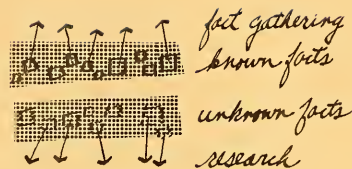 fact gathering
known facts
unknown facts
research